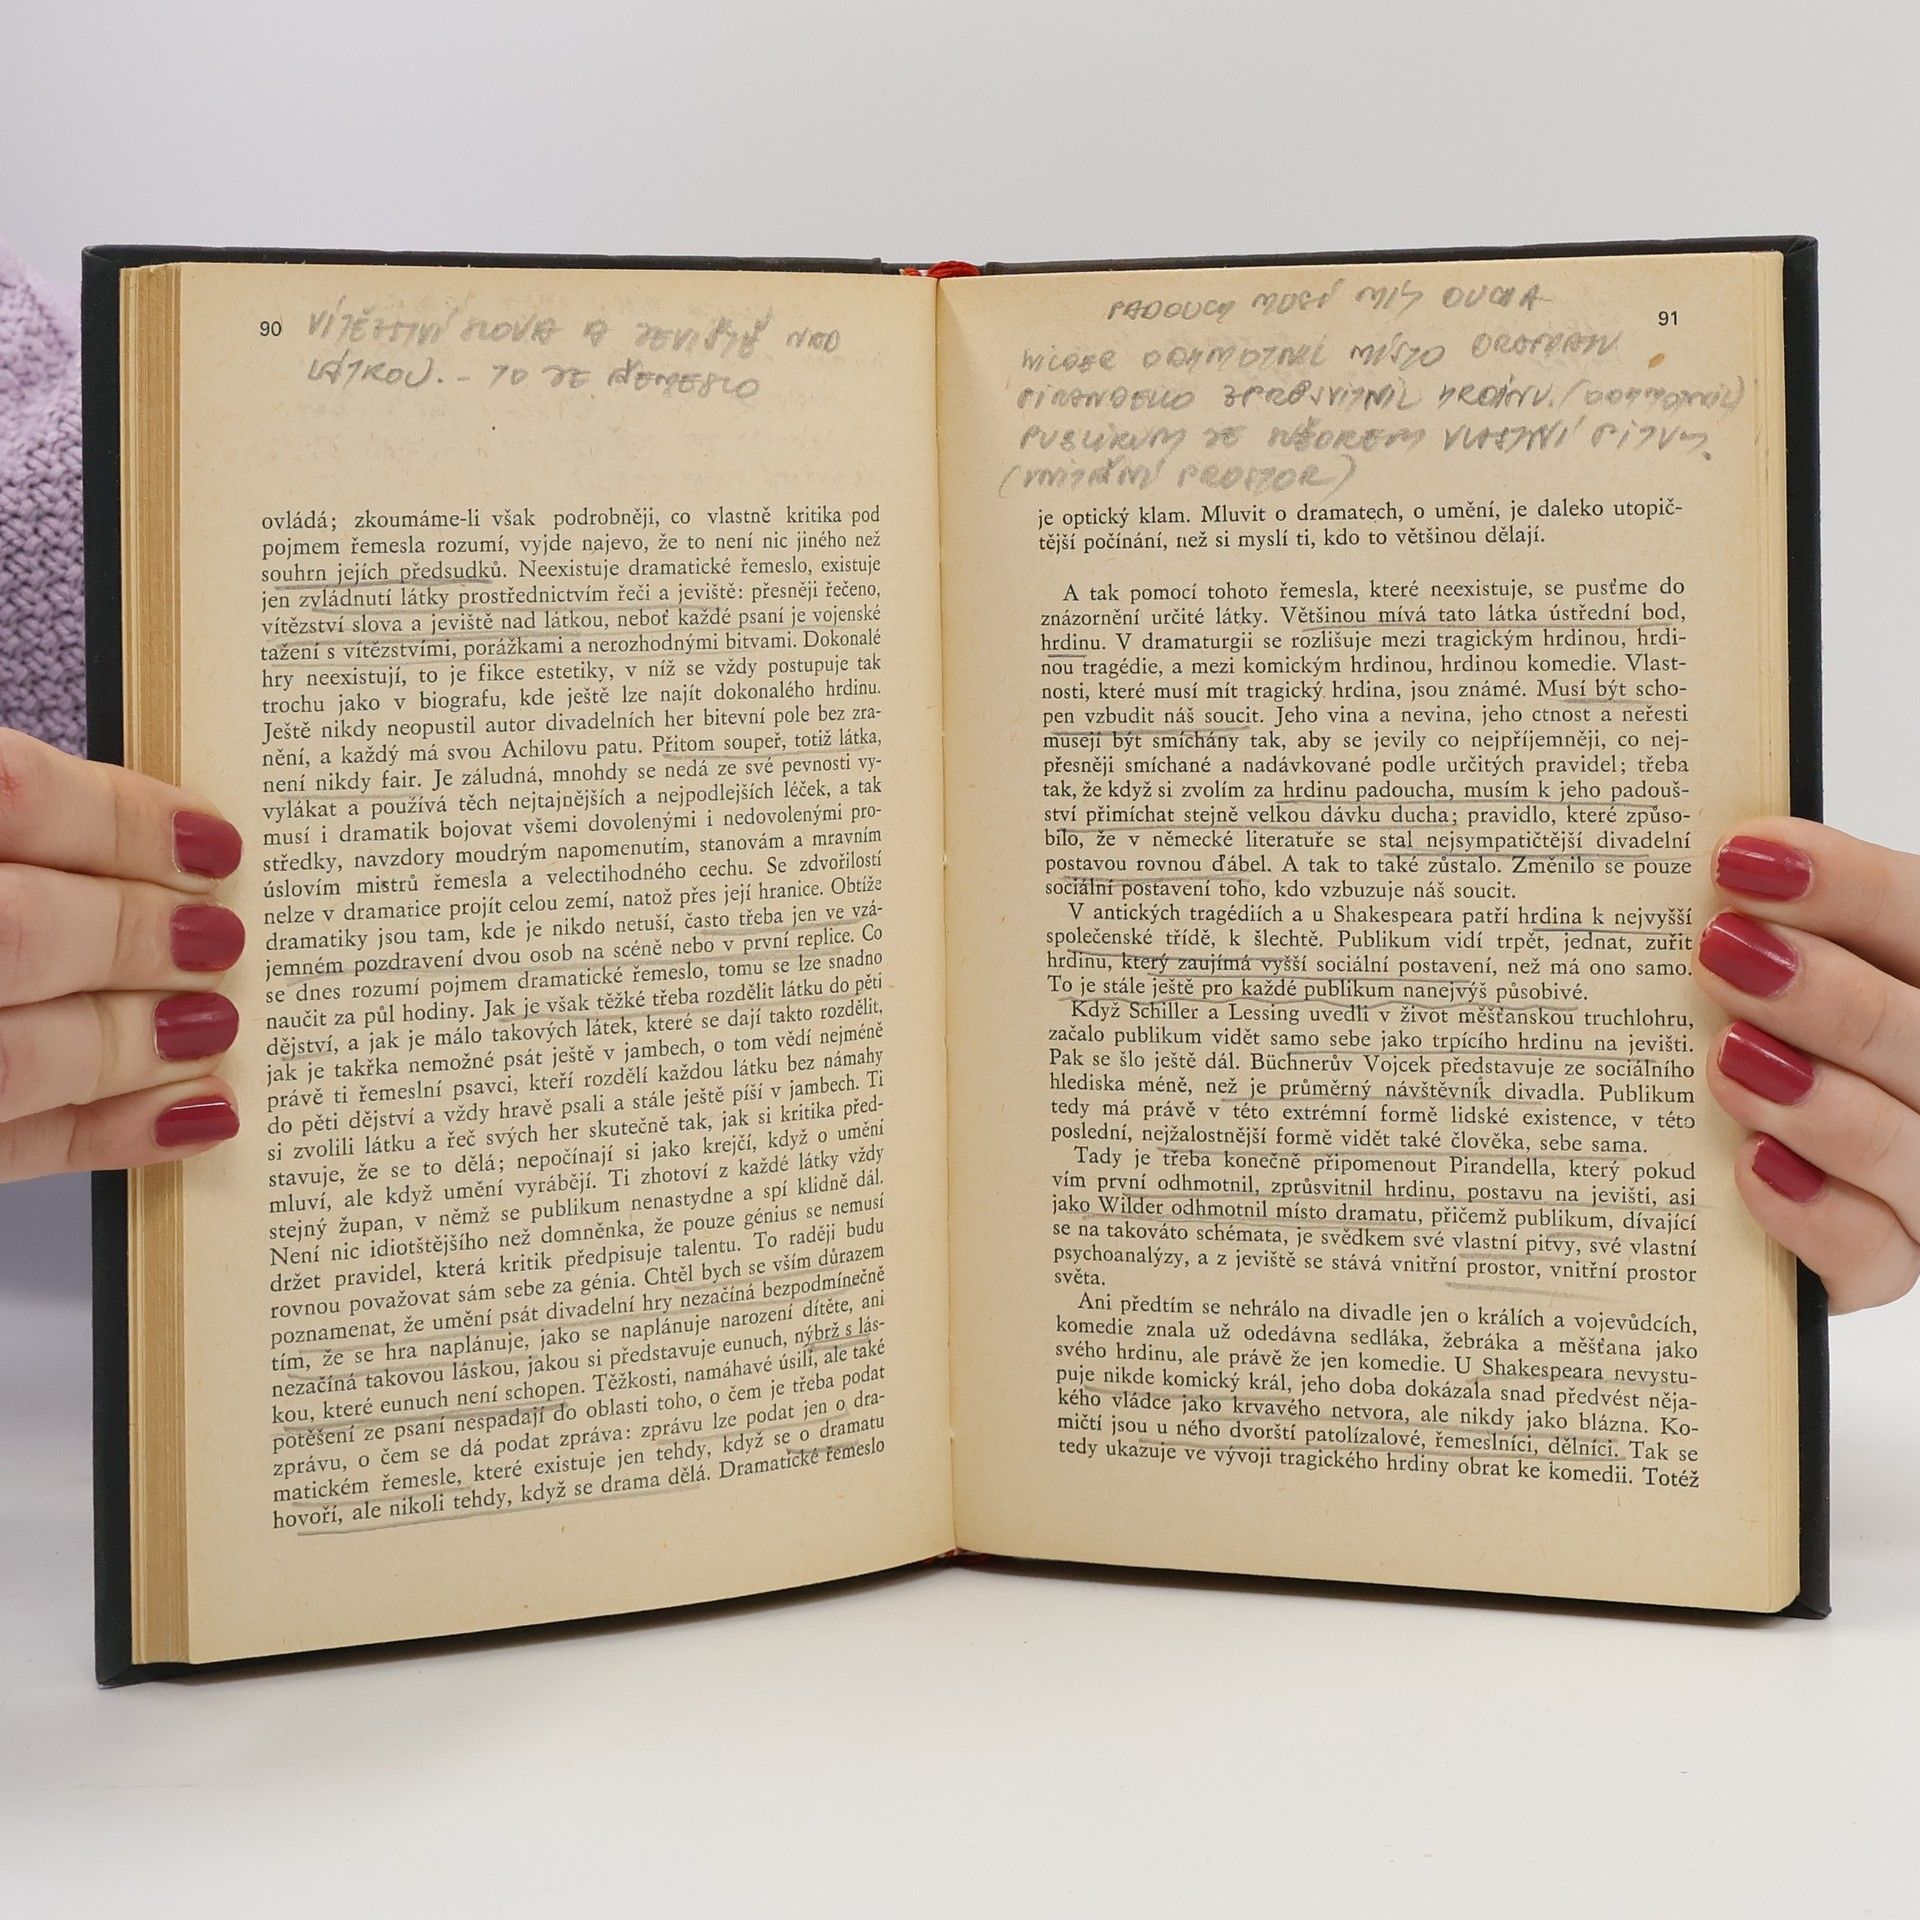 90
VÍTĚZSTVÍ SLOVA A JEVIŠTĚ NAD
LÁTKOU. - TO JE ŘEMESLO
ovládá; zkoumáme-li však podrobněji, co vlastně kritika pod
pojmem řemesla rozumí, vyjde najevo, že to není nic jiného než
souhrn jejích předsudků. Neexistuje dramatické řemeslo, existuje
jen zvládnutí látky prostřednictvím řeči a jeviště: přesněji řečeno,
vítězství slova a jeviště nad látkou, neboť každé psaní je vojenské
tažení s vítězstvími, porážkami a nerozhodnými bitvami. Dokonalé
hry neexistují, to je fikce estetiky, v níž se vždy postupuje tak
trochu jako v biografu, kde ještě lze najít dokonalého hrdinu.
Ještě nikdy neopustil autor divadelních her bitevní pole bez zra-
nění, a každý má svou Achilovu patu. Přitom soupeř, totiž látka,
není nikdy fair. Je záludná, mnohdy se nedá ze své pevnosti vy-
vylákat a používá těch nejtajnějších a nejpodlejších léček, a tak
musí i dramatik bojovat všemi dovolenými i nedovolenými pro-
středky, navzdory moudrým napomenutím, stanovám a mravním
úslovím mistrů řemesla a velectihodného cechu. Se zdvořilostí
nelze v dramatice projít celou zemí, natož přes její hranice. Obtíže
dramatiky jsou tam, kde je nikdo netuší, často třeba jen ve vzá-
jemném pozdravení dvou osob na scéně nebo v první replice. Co
se dnes rozumí pojmem dramatické řemeslo, tomu se lze snadno
naučit za půl hodiny. Jak je však těžké třeba rozdělit látku do pěti
dějství, a jak je málo takových látek, které se dají takto rozdělit,
jak je takřka nemožné psát ještě v jambech, o tom vědí nejméně
právě ti řemeslní psavci, kteří rozdělí každou látku bez námahy
do pěti dějství a vždy hravě psali a stále ještě píší v jambech. Ti
si zvolili látku a řeč svých her skutečně tak, jak si kritika před-
stavuje, že se to dělá; nepočínají si jako krejčí, když o umění
mluví, ale když umění vyrábějí. Ti zhotoví z každé látky vždy
stejný župan, v němž se publikum nenastydne a spí klidně dál.
Není nic idiotštějšího než domněnka, že pouze génius se nemusí
držet pravidel, která kritik předpisuje talentu. To raději budu
rovnou považovat sám sebe za génia. Chtěl bych se vším důrazem
poznamenat, že umění psát divadelní hry nezačíná bezpodmínečně
tím, že se hra naplánuje, jako se naplánuje narození dítěte, ani
nezačíná takovou láskou, jakou si představuje eunuch, nýbrž s lás-
kou, které eunuch není schopen. Těžkosti, namáhavé úsilí, ale také
potěšení ze psaní nespadají do oblasti toho, o čem je třeba podat
zprávu, o čem se dá podat zpráva: zprávu lze podat jen o dra-
matickém řemesle, které existuje jen tehdy, když se o dramatu
hovoří, ale nikoli tehdy, když se drama dělá. Dramatické řemeslo
91
PADOUCH MUSÍ MÍT DUCHA
WILDER ODHMOTNIL MÍSTO DRAMATU
PIRANDELLO ZPRŮSVITNIL HRDINU. (ODHMOTNIL)
PUBLIKUM JE VLASTNÍ PITVY.
(VNITŘNÍ PROSTOR)
je optický klam. Mluvit o dramatech, o umění, je daleko utopič-
tější počínání, než si myslí ti, kdo to většinou dělají.
A tak pomocí tohoto řemesla, které neexistuje, se pusťme do
znázornění určité látky. Většinou mívá tato látka ústřední bod,
hrdinu. V dramaturgii se rozlišuje mezi tragickým hrdinou, hrdi-
nou tragédie, a mezi komickým hrdinou, hrdinou komedie. Vlast-
nosti, které musí mít tragický hrdina, jsou známé. Musí být scho-
pen vzbudit náš soucit. Jeho vina a nevina, jeho ctnost a neřesti
musejí být smíchány tak, aby se jevily co nejpříjemněji, co nej-
přesněji smíchané a nadávkované podle určitých pravidel; třeba
tak, že když si zvolím za hrdinu padoucha, musím k jeho padouš-
ství přimíchat stejně velkou dávku ducha; pravidlo, které způso-
bilo, že v německé literatuře se stal nejsympatičtější divadelní
postavou rovnou ďábel. A tak to také zůstalo. Změnilo se pouze
sociální postavení toho, kdo vzbuzuje náš soucit.
V antických tragédiích a u Shakespeara patří hrdina k nejvyšší
společenské třídě, k šlechtě. Publikum vidí trpět, jednat, zuřit
hrdinu, který zaujímá vyšší sociální postavení, než má ono samo.
To je stále ještě pro každé publikum nanejvýš působivé.
Když Schiller a Lessing uvedli v život měšťanskou truchlohru,
začalo publikum vidět samo sebe jako trpícího hrdinu na jevišti.
Pak se šlo ještě dál. Büchnerův Vojcek představuje ze sociálního
hlediska méně, než je průměrný návštěvník divadla. Publikum
tedy má právě v této extrémní formě lidské existence, v této
poslední, nejžalostnější formě vidět také člověka, sebe sama.
Tady je třeba konečně připomenout Pirandella, který pokud
vím první odhmotnil, zprůsvitnil hrdinu, postavu na jevišti, asi
jako Wilder odhmotnil místo dramatu, přičemž publikum, dívající
se na takováto schémata, je svědkem své vlastní pitvy, své vlastní
psychoanalýzy, a z jeviště se stává vnitřní prostor, vnitřní prostor
světa.
Ani předtím se nehrálo na divadle jen o králích a vojevůdcích,
komedie znala už odedávna sedláka, žebráka a měšťana jako
svého hrdinu, ale právě že jen komedie. U Shakespeara nevystu-
puje nikde komický král, jeho doba dokázala snad předvést něja-
kého vládce jako krvavého netvora, ale nikdy jako blázna. Ko-
mičtí jsou u něho dvorští patolízalové, řemeslníci, dělníci. Tak se
tedy ukazuje ve vývoji tragického hrdiny obrat ke komedii. Totéž